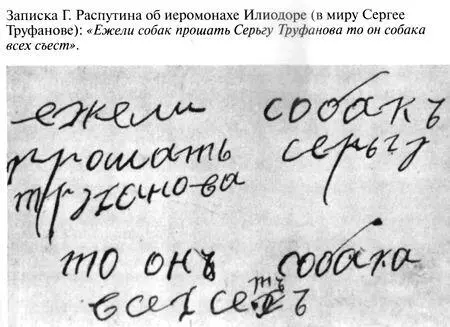 Записка Г. Распутина об иеромонахе Илиодоре (в миру Сергее
Труфанове): «Ежели собак прошать Серьгу Труфанова то он собака
всех съест».
ежели собакъ
прошать серьгу
трханова
то онъ собака
всех сехтъ